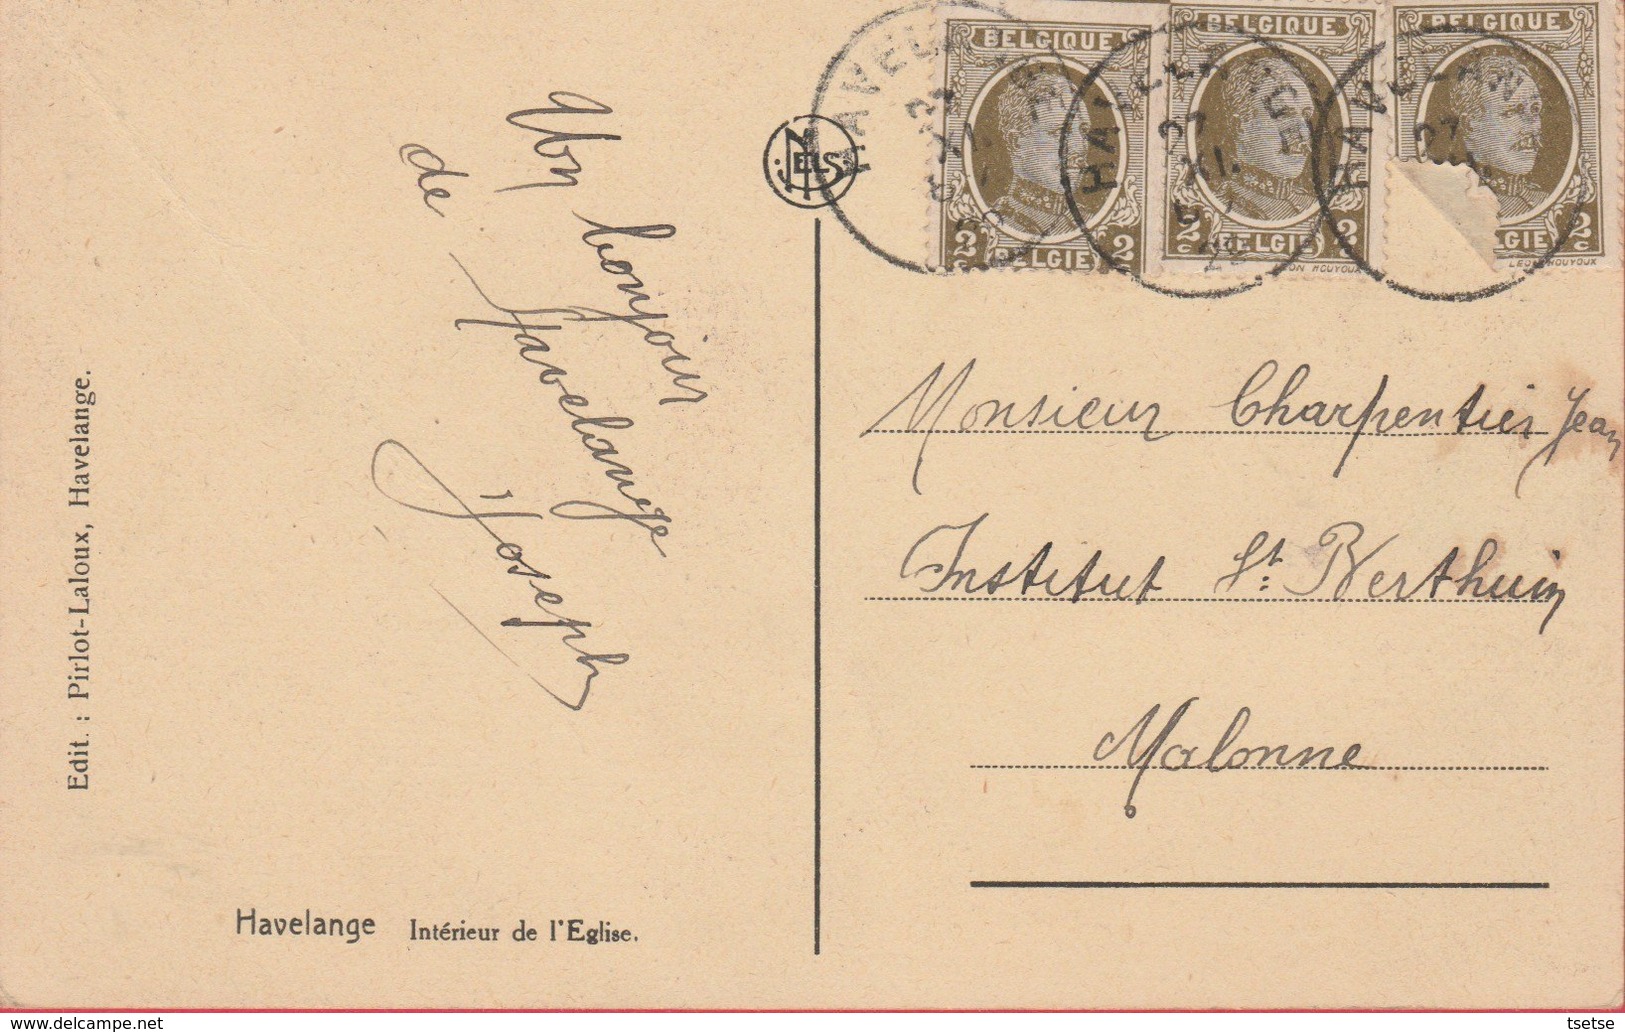 Un bonjour
de Havelange
Joseph
NELS
Edit. : Pirlot-Laloux, Havelange.
Havelange Intérieur de l'Eglise.
BELGIQUE
2c 2c
BELGIE
BELGIQUE
2c 2c
BELGIE
HOUYOUX
BELGIQUE
2c
BELGIE
HOUYOUX
HAVELANGE
HAVELANGE
27
XI
HAVELANGE
27
Monsieur Charpentier Jean
Institut St. Berthuin
Malonne
delcampe.net
tsetse